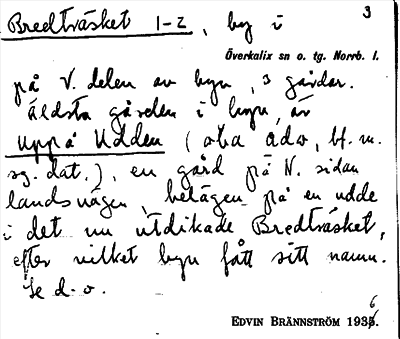 3
Bredträsket 1-2, by i
Överkalix sn o. tg. Norrb. l.
på V. delen av byn, 3 gårdar.
Äldsta gården i byn är
Uppå Udden (oba ådw, bf. m.
sg. dat.), en gård på N. sidan
landsvägen, belägen på en udde
i det nu utdikade Bredträsket,
efter vilket byn fått sitt namn.
Se d. o.
EDVIN BRÄNNSTRÖM 1936.